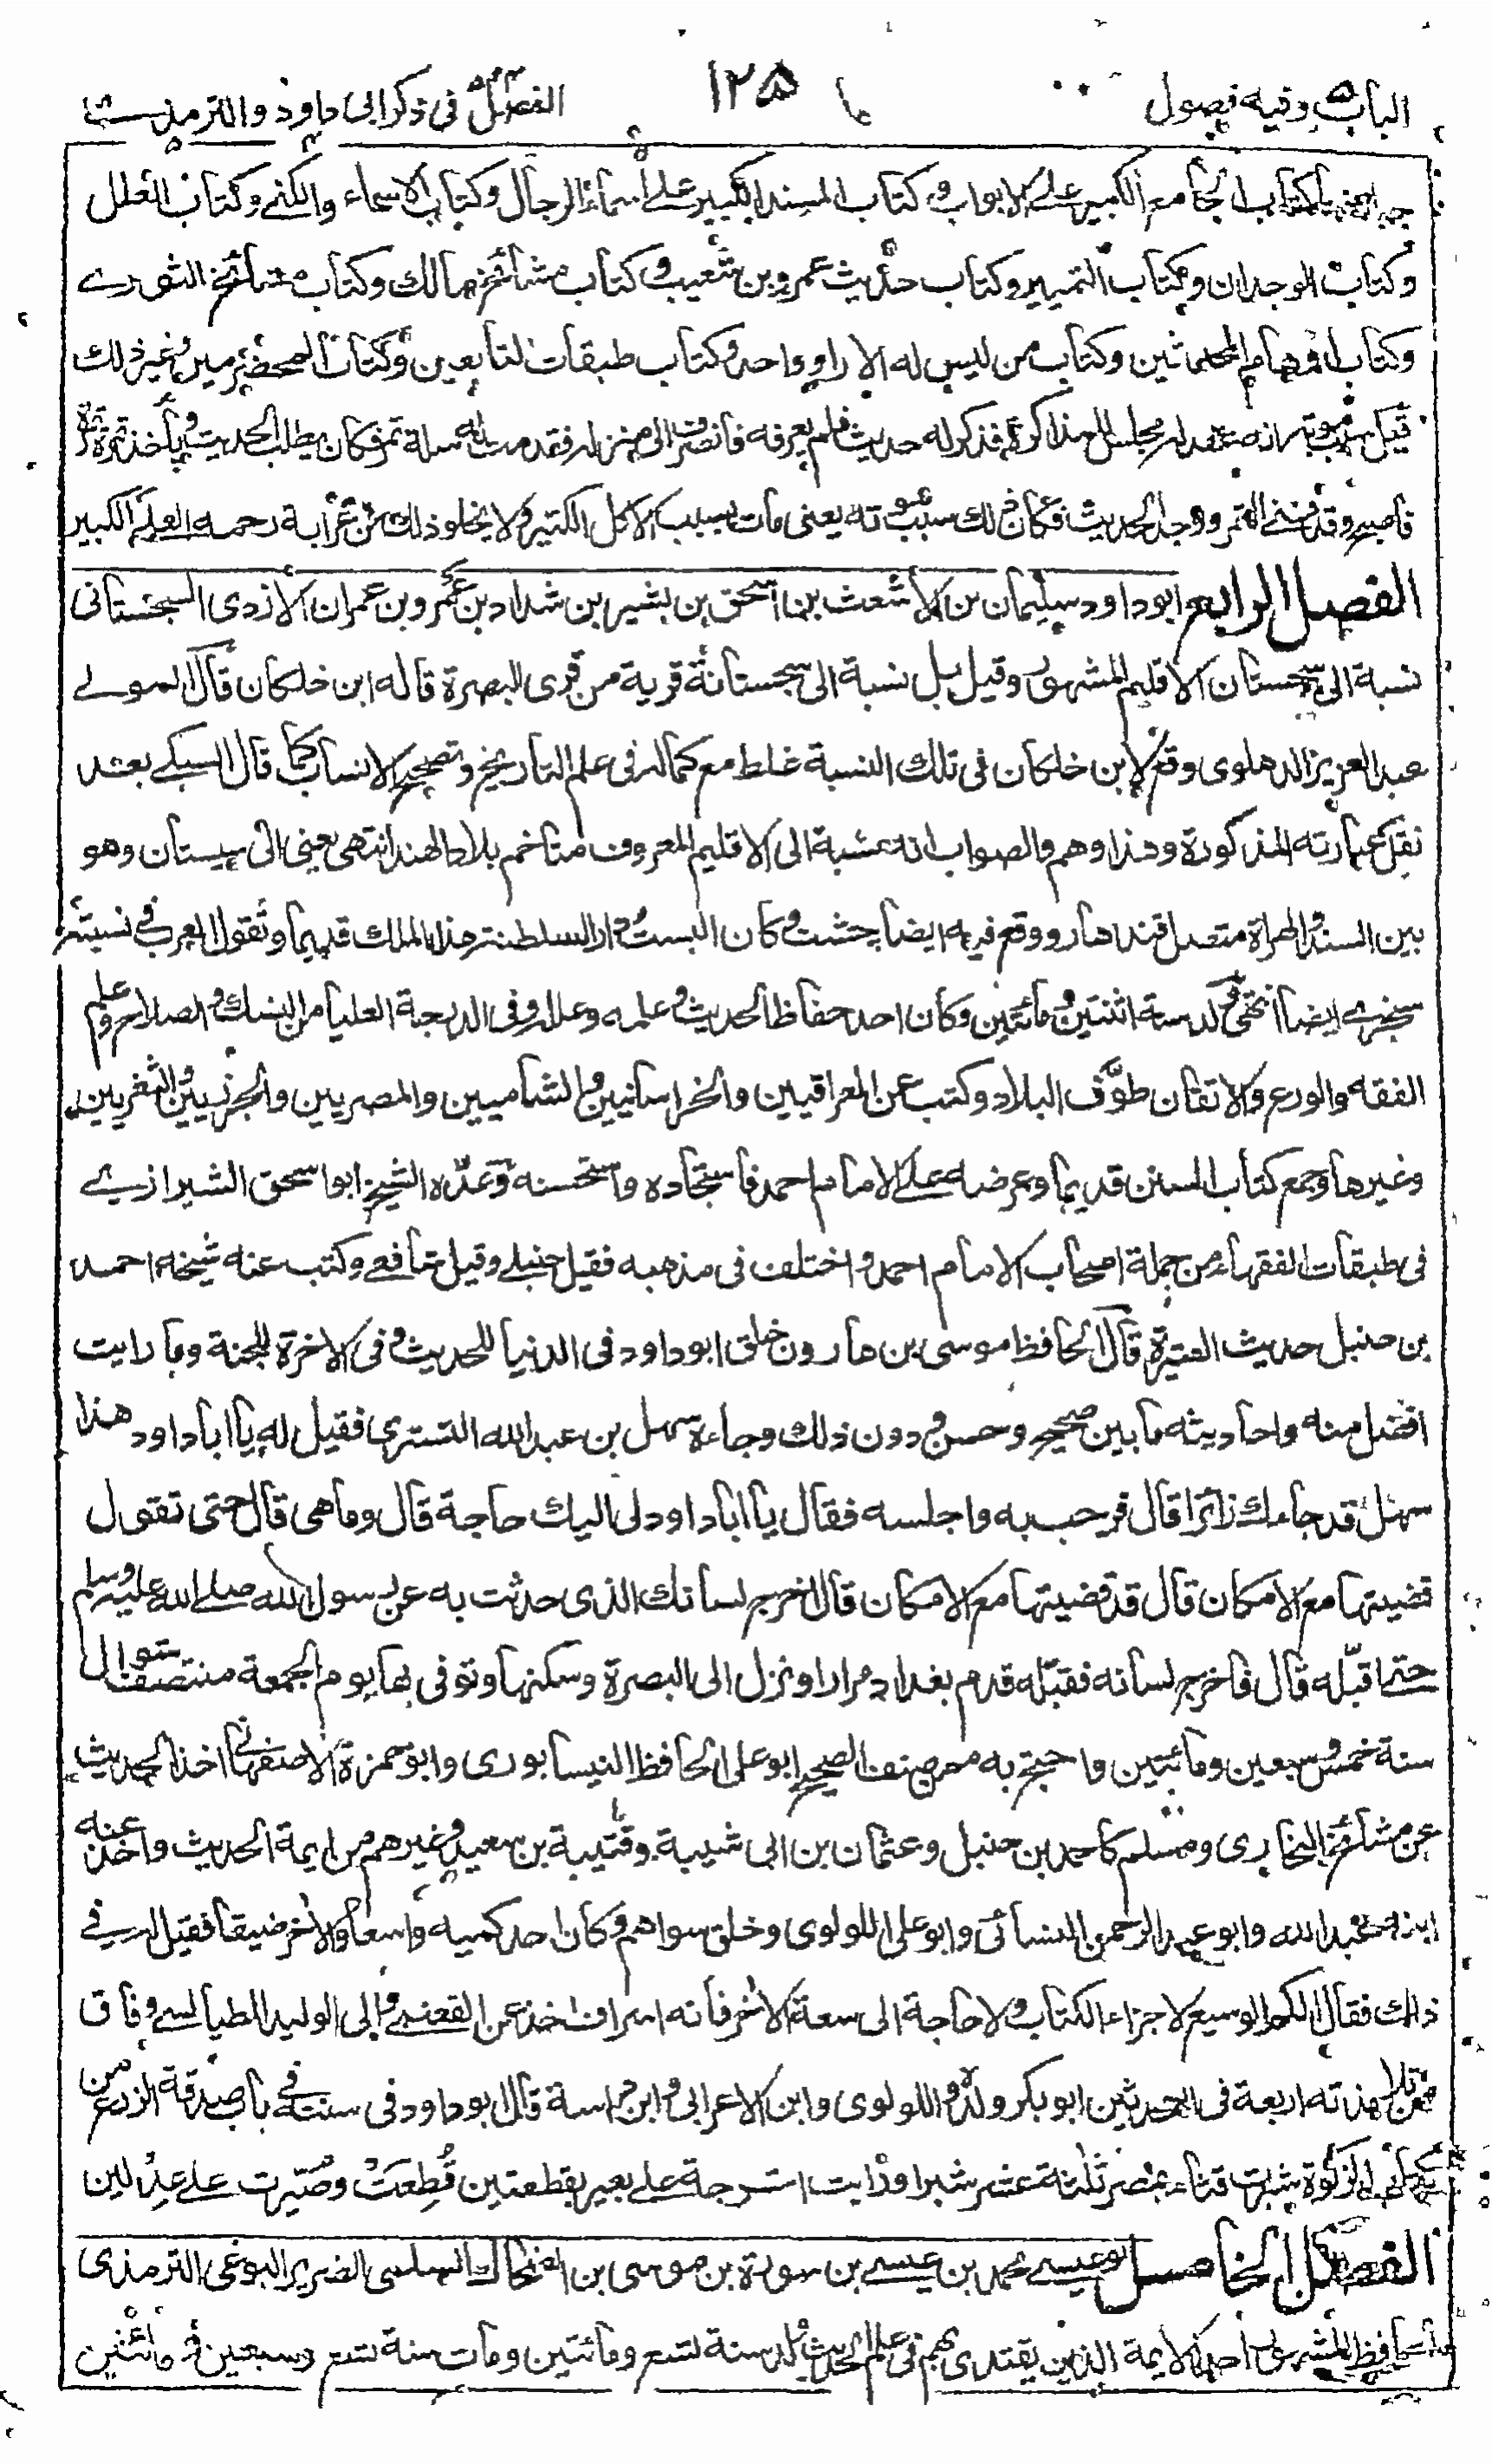 الباب ٥ وفيه فصول
١٢٥
الفصل في ذكر ابي داود والترمذي
الكتاب الجامع الكبير على الابواب وكتاب المسند الكبير على اسماء الرجال وكتاب الاسماء والكنى وكتاب العلل
وكتاب الوجدان وكتاب التمييز وكتاب حديث عمرو بن شعيب وكتاب مشائخ مالك وكتاب مشائخ الثوري
وكتاب اوهام المحدثين وكتاب من ليس له الا راو واحد وكتاب طبقات التابعين وكتاب المخضرمين وغير ذلك
قيل سبب موته انه عقد له مجلس للمذاكرة فذكر له حديث فلم يعرفه فانصرف الى منزله فقدمت له سلة تمر فكان يطلب الحديث ويأخذ تمرة تمرة
فاصبح وقد فنى التمر ووجد الحديث فكان ذلك سبب موته يعني مات بسبب الاكل الكثير ولا يخلو ذلك من غرابة رحمه العلي الكبير
الفصل الرابع ابو داود سليمان بن الاشعث بن اسحق بن بشير بن شداد بن عمرو بن عمران الازدي السجستاني
نسبة الى سجستان الاقليم المشهور وقيل بل نسبة الى سجستانة قرية من قرى البصرة قاله ابن خلكان قال المولى
عبد العزيز الدهلوي وقع لابن خلكان في تلك النسبة غلط مع كماله في علم التاريخ وتصحيح الانساب كما قال السبكي بعد
نقل عبارته المذكورة وهذا وهم والصواب انه نسبة الى الاقليم المعروف متاخم بلاد الهند انتهى يعني الى سيستان وهو
بين السند والهراة متصل قندهار ووقع فيه ايضا چشت وكان البست دار السلطنة هذا الملك قديما وتقول العرب في نسبته
سجزي ايضا انتهى ولد سنة اثنتين ومائتين وكان احد حفاظ الحديث وعلمه وعلله وفي الدرجة العليا من النسك والصلاح وعلم
الفقه والورع والاتقان طوّف البلاد وكتب عن العراقيين والخراسانيين والشاميين والمصريين والجزريين والثغريين
وغيرها وجمع كتاب السنن قديما وعرضه على الامام احمد فاستجاده واستحسنه وعدّه الشيخ ابو اسحق الشيرازي
في طبقات الفقهاء من جملة اصحاب الامام احمد واختلف في مذهبه فقيل حنبلي وقيل شافعي وكتب عنه شيخه احمد
بن حنبل حديث العتيرة قال الحافظ موسى بن هارون خلق ابو داود في الدنيا للحديث وفي الاخرة للجنة وما رايت
افضل منه واحاديثه ما بين صحيح وحسن ودون ذلك وجاءه سهل بن عبد الله التستري فقيل له يا ابا داود هذا
سهل قد جاءك زائرا قال فرحب به واجلسه فقال يا ابا داود لي اليك حاجة قال وما هي قال حتى تقول
قضيتها مع الامكان قال قد قضيتها مع الامكان قال اخرج لسانك الذي حدثت به عن رسول الله صلى الله عليه وسلم
حتى اقبّله قال فاخرج لسانه فقبّله قدم بغداد مرارا ونزل الى البصرة وسكنها وتوفي بها يوم الجمعة منتصف شوال
سنة خمس وسبعين ومائتين واحتج به مصنف الصحيح ابو علي الحافظ النيسابوري وابو حمزة الاصفهاني اخذ الحديث
عن مشائخ البخاري ومسلم كاحمد بن حنبل وعثمان بن ابي شيبة وقتيبة بن سعيد وغيرهم من ايمة الحديث واخذ عنه
ابنه عبد الله وابو عبد الرحمن النسائي وابو علي اللولوي وخلق سواهم وكان احد كميه واسعا والاخر ضيقا فقيل له في
ذلك فقال الكم الوسيع لاجزاء الكتاب ولا حاجة الى سعة الاخر فانه اسراف اخذ عن القعنبي وابي الوليد الطيالسي وفاق
من تلامذته اربعة في المحدثين ابو بكر ولده واللولوي وابن الاعرابي وابن داسة قال ابو داود في سننه في باب صدقة الزرع من
كتاب الزكوة شبرت قثاءة بمصر ثلثة عشر شبرا ورايت اترجة على بعير بقطعتين قُطِعَتْ وصُيّرت على عِدلين
الفصل الخامس ابو عيسى محمد بن عيسى بن سورة بن موسى بن الضحاك السلمي الضرير البوغي الترمذي
الحافظ المشهور احد الايمة الذين يقتدى بهم في علم الحديث ولد سنة تسع ومائتين ومات سنة تسع وسبعين ومائتين